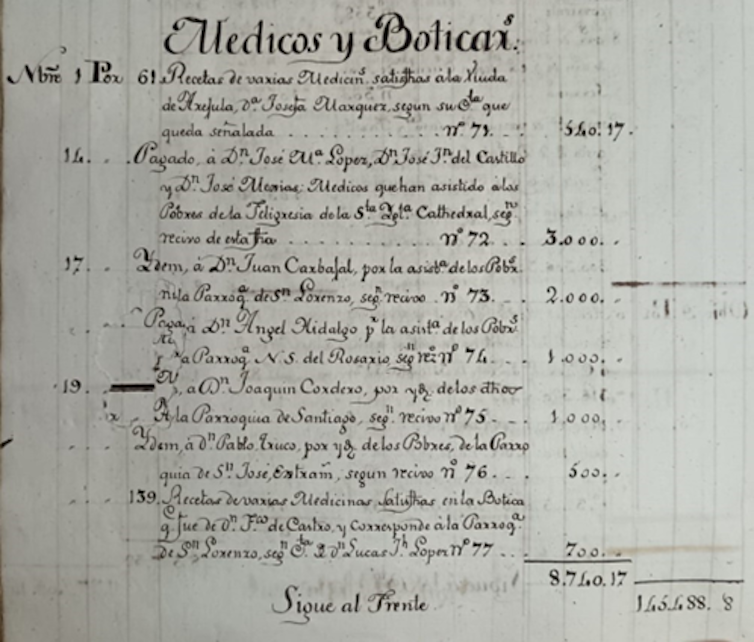 Medicos y Boticar.s
Nbre 1 Por 61. Recetas de varias Medicin.s satisfhas à la Viuda
de Arejula, d.a Josefa Marquez, segun su C.ta que
queda señalada . . . . . . . . . . n.o 71. . 540. 17.
14. . . Pagado, à D.n José M.a Lopez, D.n José J.n del Castillo
y D.n José Mexias; Medicos que han asistido à los
Pobres de la Feligresia de la S.ta Cathedral, seg.n
recivo de esta fha . . . . . . . . . . n.o 72 . . 3.000. .
17. . Ydem, à D.n Juan Carbajal, por la asist.a de los Pobr.s
la Parroq.a de S.n Lorenzo, seg.n recivo n.o 73. . . 2.000. .
. . . à D.n Angel Hidalgo p.r la asist.a de los Pobr.s
Parroq.a N. S. del Rosario, seg.n n.o 74. . . 1.000. .
19. à D.n Joaquin Cordero, por yg. de los dhos
la Parroquia de Santiago, seg.n recivo n.o 75 . . . 1.000. .
. . . Ydem, à d.n Pablo, por yg. de los Pbres, de la Parro
quia de S.n José, Extram., segun recivo n.o 76 . . . 500. .
. . . 139. Recetas de varias Medicinas satisfhas en la Botica
q. fue de d.n F.co de Castro, y corresponde à la Parroq.a
de S.n Lorenzo, seg.n C.ta d.n Lucas Lopez n.o 77 . . . 700. .
8.740. 17
145.488. 8
Sigue al Frente